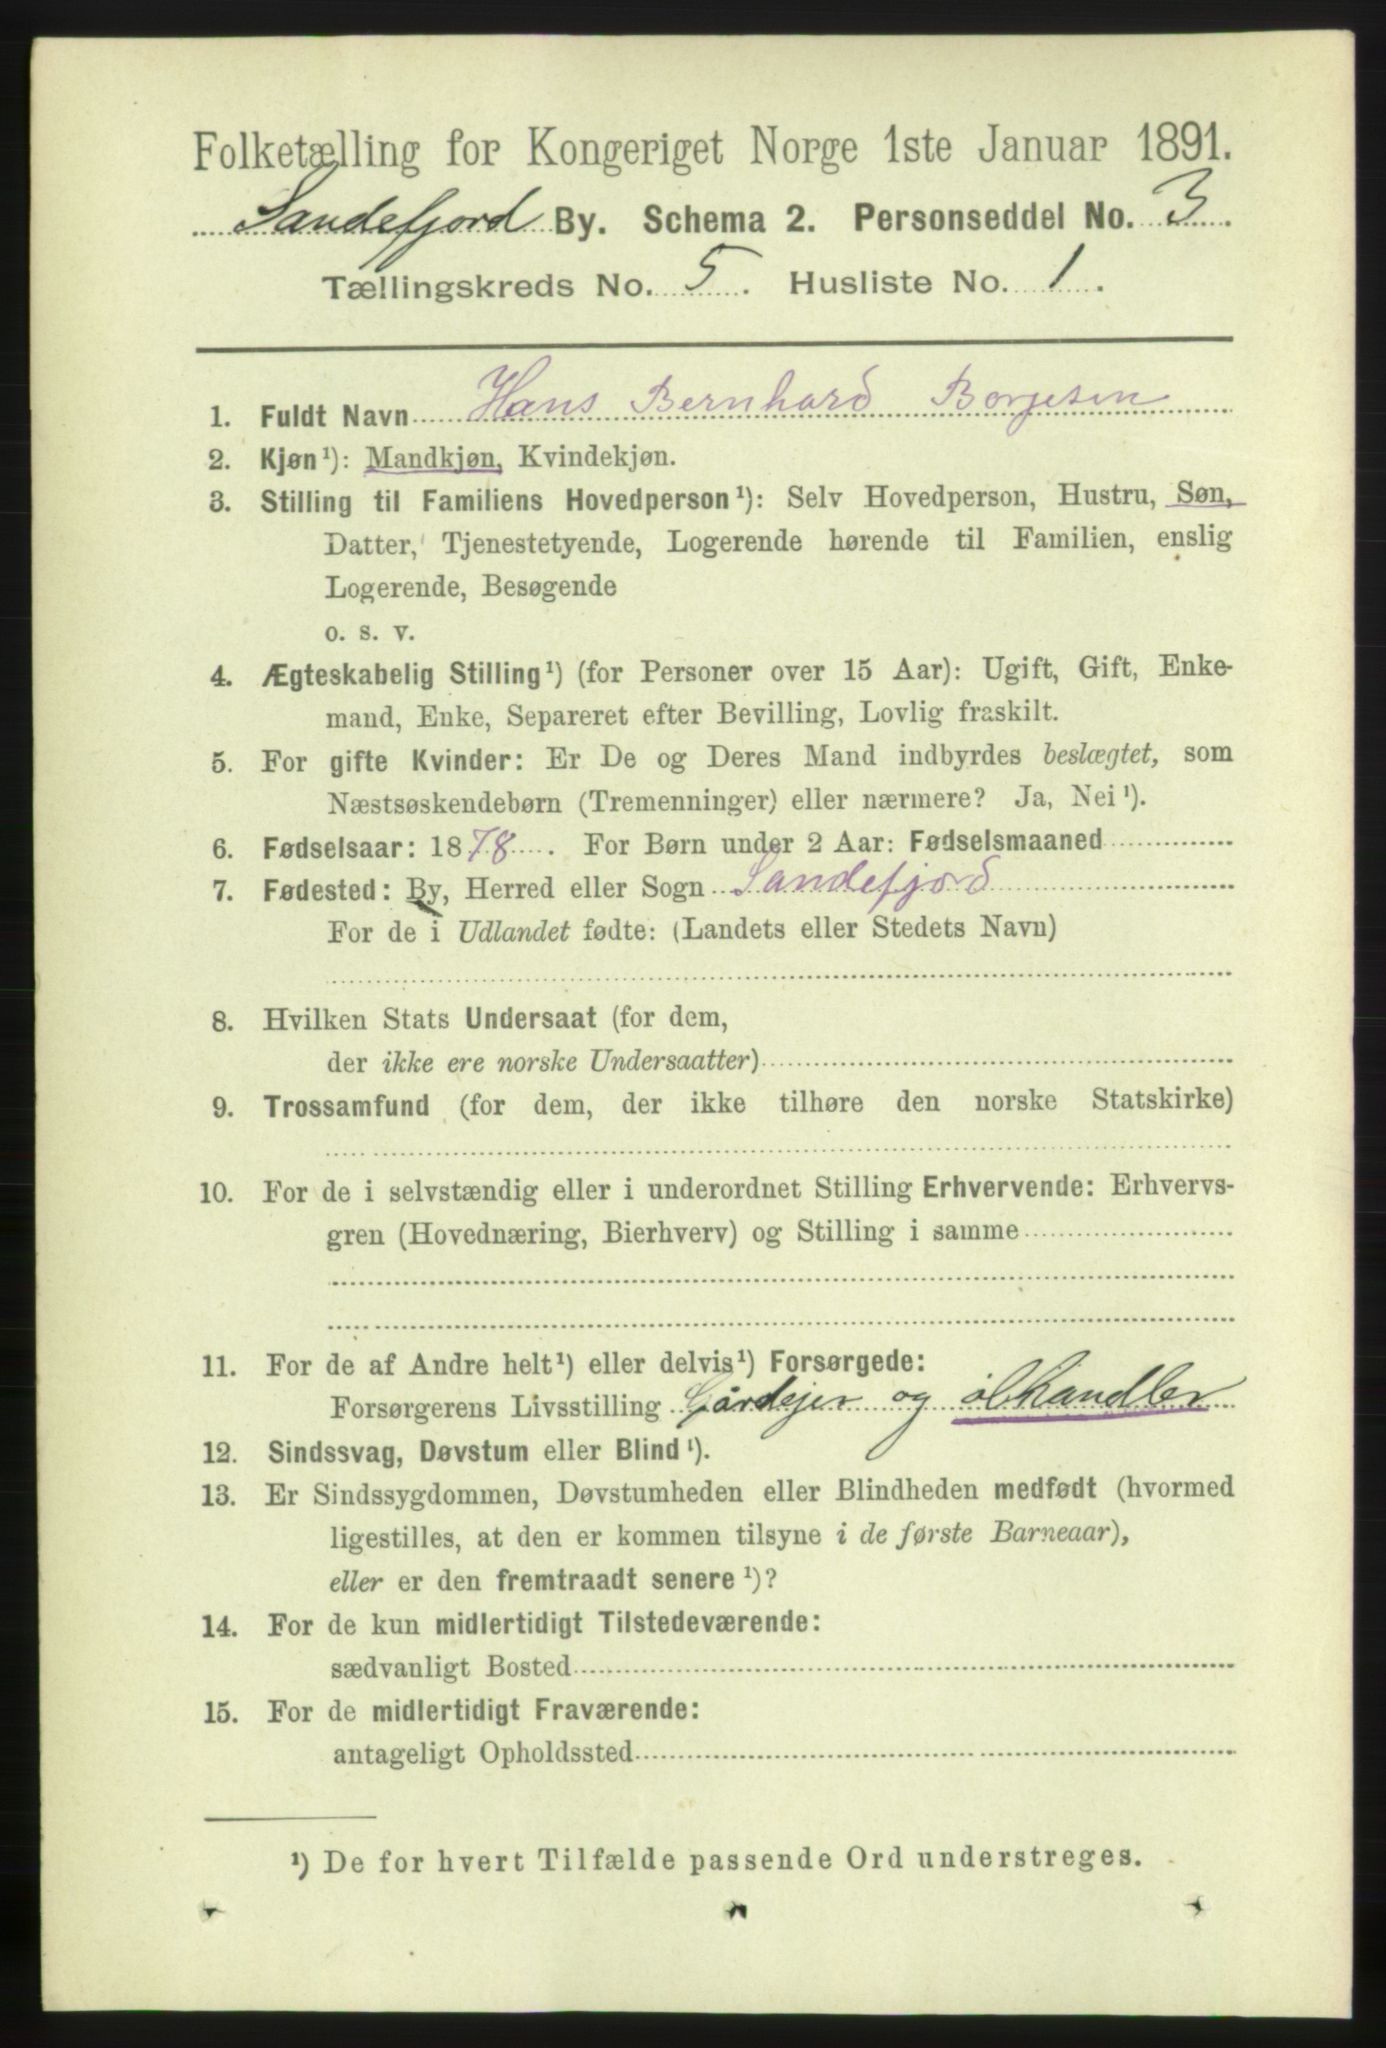 Folketælling for Kongeriget Norge 1ste Januar 1891.
Sandefjord By. Schema 2. Personseddel No. 3.
Tællingskreds No. 5. Husliste No. 1.
1. Fuldt Navn Hans Bernhard Borgesen
2. Kjøn¹): Mandkjøn, Kvindekjøn.
3. Stilling til Familiens Hovedperson¹): Selv Hovedperson, Hustru, Søn,
Datter, Tjenestetyende, Logerende hørende til Familien, enslig
Logerende, Besøgende
o. s. v.
4. Ægteskabelig Stilling¹) (for Personer over 15 Aar): Ugift, Gift, Enke-
mand, Enke, Separeret efter Bevilling, Lovlig fraskilt.
5. For gifte Kvinder: Er De og Deres Mand indbyrdes beslægtet, som
Næstsøskendebørn (Tremenninger) eller nærmere? Ja, Nei¹).
6. Fødselsaar: 1878. For Børn under 2 Aar: Fødselsmaaned
7. Fødested: By, Herred eller Sogn Sandefjord
For de i Udlandet fødte: (Landets eller Stedets Navn)
8. Hvilken Stats Undersaat (for dem,
der ikke ere norske Undersaatter)
9. Trossamfund (for dem, der ikke tilhøre den norske Statskirke)
10. For de i selvstændig eller i underordnet Stilling Erhvervende: Erhvervs-
gren (Hovednæring, Bierhverv) og Stilling i samme
11. For de af Andre helt¹) eller delvis¹) Forsørgede:
Forsørgerens Livsstilling Gårdejer og ølhandler
12. Sindssvag, Døvstum eller Blind¹).
13. Er Sindssygdommen, Døvstumheden eller Blindheden medfødt (hvormed
ligestilles, at den er kommen tilsyne i de første Barneaar),
eller er den fremtraadt senere¹)?
14. For de kun midlertidigt Tilstedeværende:
sædvanligt Bosted
15. For de midlertidigt Fraværende:
antageligt Opholdssted
¹) De for hvert Tilfælde passende Ord understreges.